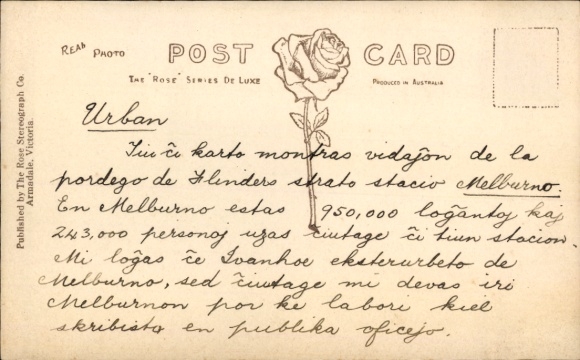 REAL PHOTO
POST CARD
THE "ROSE" SERIES DE LUXE
PRODUCED IN AUSTRALIA
Published by The Rose Stereograph Co.
Armadale, Victoria.
Urban
Tiu ĉi karto montras vidaĵon de la
pordego de Flinders strato stacio Melburno.
En Melburno estas 950,000 loĝantoj kaj
243,000 personoj uzas ĉiutage ĉi tiun stacion.
Mi loĝas ĉe Ivanhoe eksterurbeto de
Melburno, sed ĉiutage mi devas iri
Melburnon por ke labori kiel
skribisto en publika oficejo.